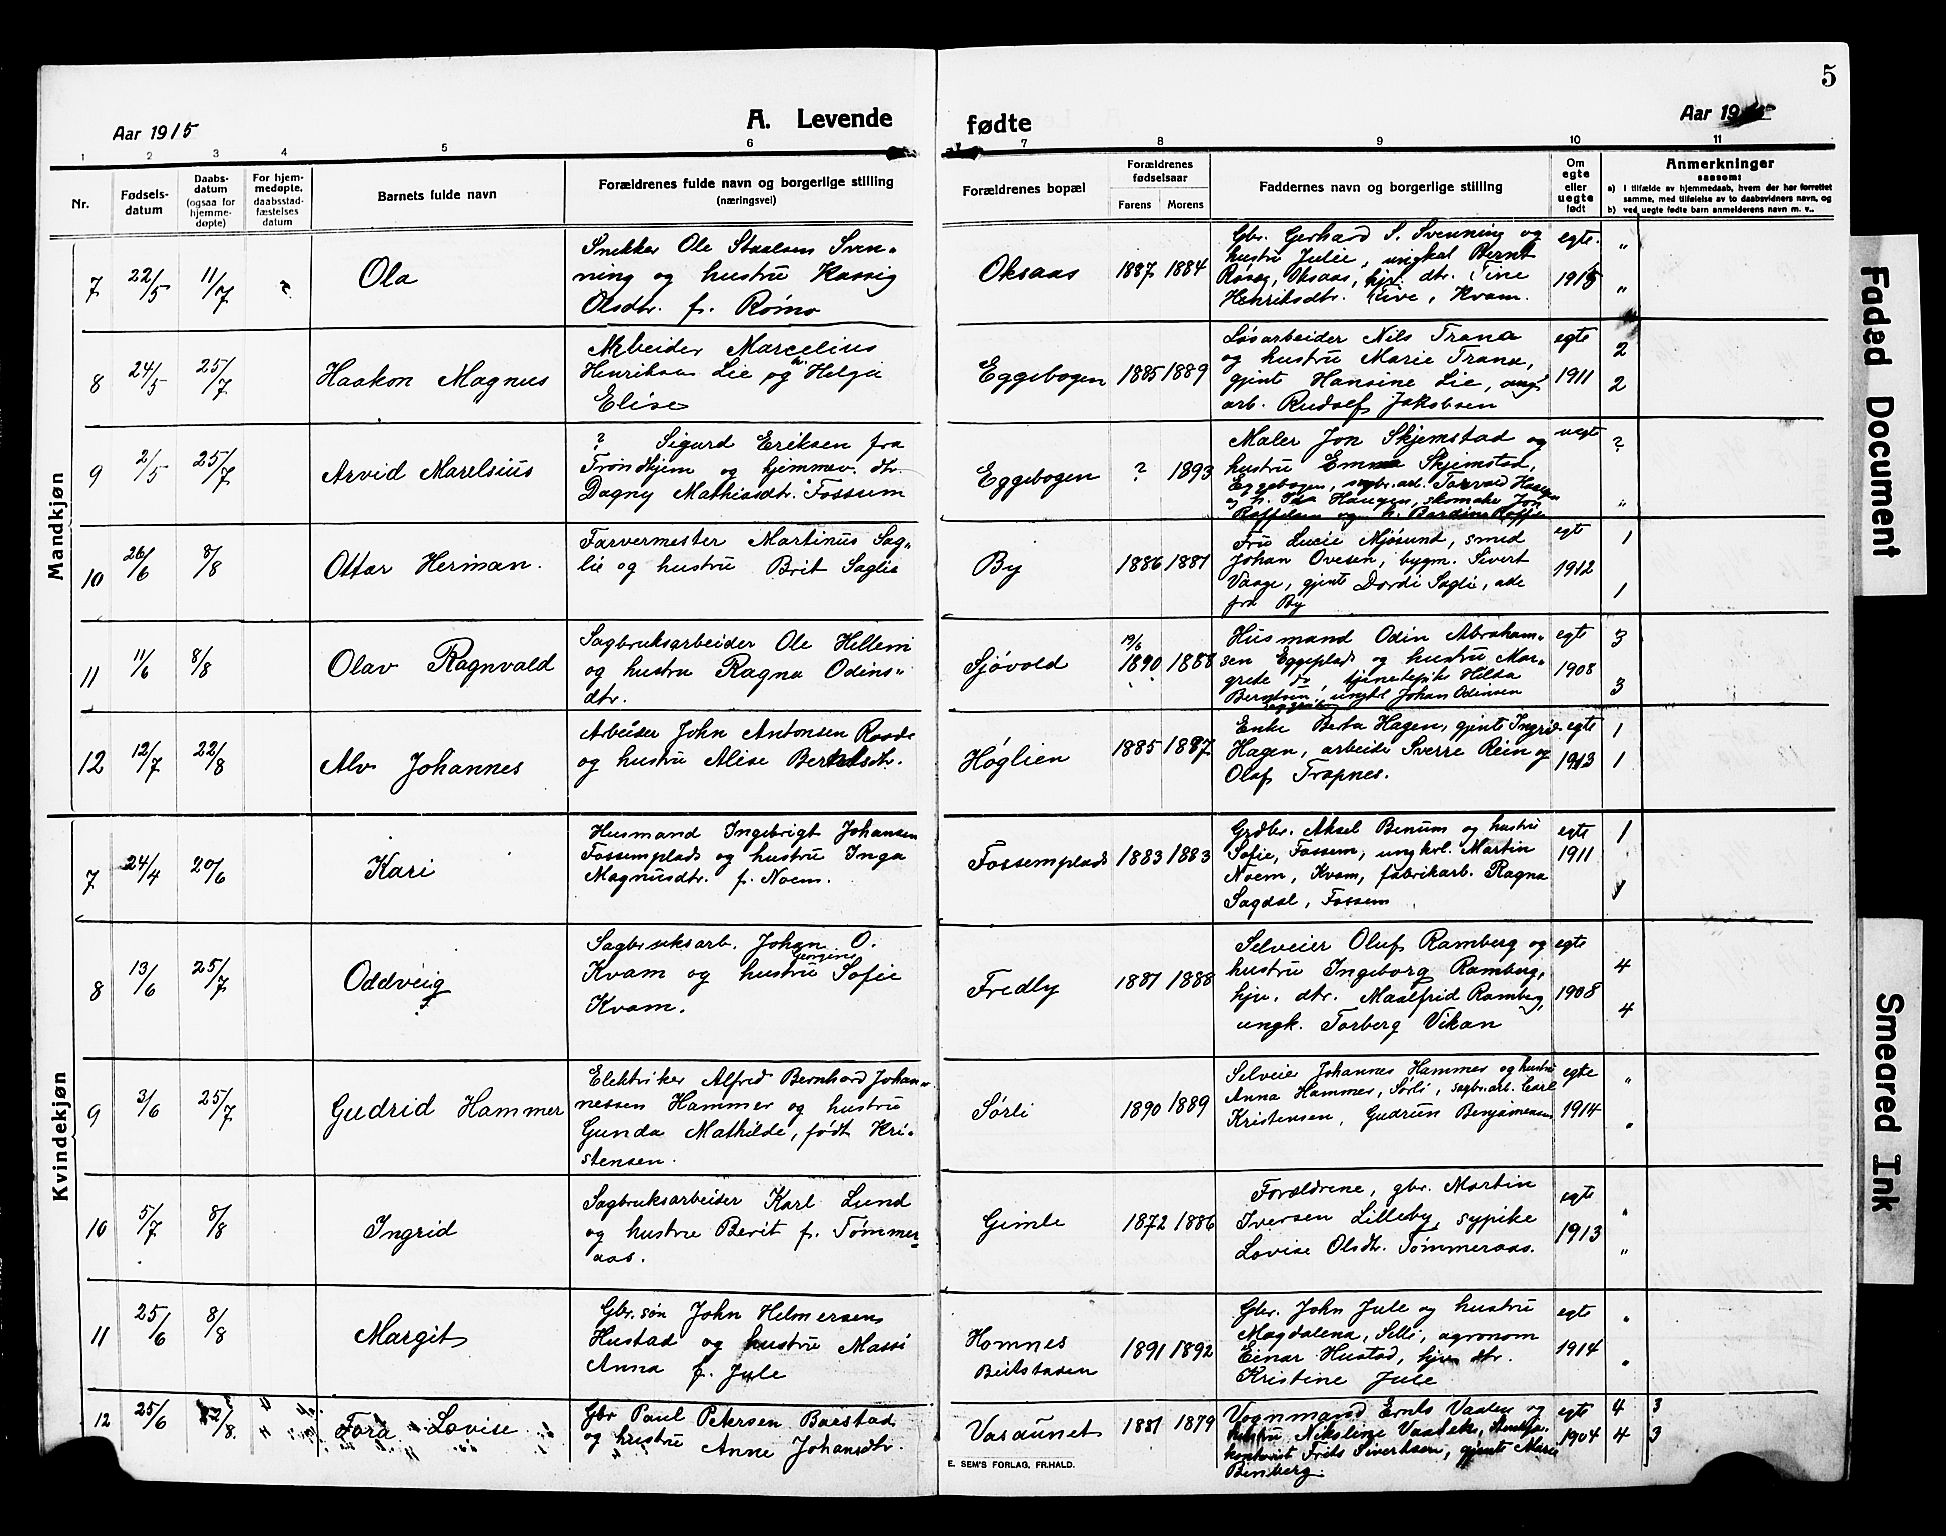 5
Aar 1915
A. Levende
fødte
Aar 19
1 2 3 4 5 6 7 8 9 10 11
Nr.
Fødsels-
datum
Daabs-
datum
(ogsaa for
hjemme-
døpte)
For hjem-
medøpte,
daabsstad-
fæstelses
datum
Barnets fulde navn
Forældrenes fulde navn og borgerlige stilling
(næringsvei)
Forældrenes bopæl
Forældrenes
fødselsaar
Farens Morens
Faddernes navn og borgerlige stilling
Om
egte
eller
uegte
født
Anmerkninger
saasom:
a) I tilfælde av hjemmedaab, hvem der har forrettet
samme, med tilføielse av to daabsvidners navn, og
b) ved uegte fødte barn anmelderens navn m. v..
Mandkjøn
7 22/5 11/7 Ola
Snekker Ole Staalsen Sven-
ning og hustru
Olsdtr. f. Rømo
Oksaas 1887 1884
Gbr. Gerhard S. Svenning og
hustru Julie, ungkal Bernt
Oksaas, hjv. dtr. Tine
Henriksdtr. Five, Kvam.
egte.
1915
" "
8 24/5 25/7 Haakon Magnus
Arbeider Marcelius
Henriksen Lie og h. Helga
Elise
Eggebogen 1885 1889
Løsarbeider Nils Trana
og hustru Marie Trana,
gjent Hansine Lie, ung
arb. Rudolf Jakobsen
egte
1911
2
2
9 2/5 25/7 Arvid Marelsius
? Sigurd Eriksen fra
Trondhjem og hjemmev. dtr.
Dagny Mathiasdtr. Fossum
Eggebogen ? 1893
Maler Jon Skjemstad og
hustru Emma Skjemstad,
Eggebogen, sagbr.arb. Torvald Haugen
og h. Haugen, skomaker Jon
og h. Bardine
uegte
?
"
10 26/6 8/8 Ottar Herman.
Farvermester Martinus Sag-
lie og hustru Brit Saglie
By 1886 1887
Fru Lucie Mjøsund, smed
Johan Ovesen, bygm. Sivert
Vaage, gjent Dordi Saglie, alle
fra By
egte
1912
1
1
11 11/6 8/8 Olav Ragnvald
Sagbruksarbeider Ole Hellem
og hustru Ragna Odins-
dtr.
Sjøvold 19/6 1890 1888
Husmand Odin Abraham-
sen Eggeplads og hustru Mar-
grete do, tjenestepike Hilda
Berntsen, ungkl Johan Odinsen
egte
1908
3
3
12 12/7 22/8 Alv Johannes
Arbeider John Antonsen Raade
og hustru Alise Berntsdtr.
Høglien 1885 1887
Enke Berta Hagen, gjent Ingrid
Hagen, arbeide Sverre Rein og
Olaf Trapnes.
egte
1913
1
1
Kvindekjøn
7 24/4 20/6 Kari
Husmand Ingebrigt Johansen
Fossemplads og hustru Inga
Magnusdtr. f. Noem.
Fossemplads 1883 1883
Grdbr. Aksel Benum og hustru
Sofie, Fossem, ungkrl. Martin
Noem, Kvam, fabrikarb. Ragna
Sagdal, Fossem
egte
1911
1
1
8 13/6 25/7 Oddveig
Sagbruksarb. Johan O.
Kvam og hustru Georgine Sofie
Kvam.
Fredly 1881 1888
Selveier Oluf Ramberg og
hustru Ingeborg Ramberg,
hjv. dtr. Maalfrid Ramberg,
ungk. Torberg Vikan
egte
1908
4
4
9 3/6 25/7 Gudrid Hammer
Elektriker Alfred Bernhard Johan-
nessen Hammer og hustru
Gunda Mathilde, født Kri-
stensen.
Sørli 1890 1889
Selveier Johannes Hammer og hustru
Anna Hammer, Sørli, sagbr.arb. Carl
Kristensen, Gudrun Benjaminsen
egte
1914
" "
10 5/7 8/8 Ingrid
Sagbruksarbeider Karl Lund
og hustru Berit f. Tømmer-
aas.
Gimle 1872 1886
Forældrene, gbr. Martin
Iversen Lilleby, sypike
Lovise Olsdtr. Tømmeraas.
egte
1913
" "
11 25/6 8/8 Margit
Gbr.søn John Helmersen
Hustad og hustru Massi
Anna f. Jule
Homnes
Beitstaden 1891 1892
Gbr. John Jule og hustru
Magdalena, Selli, agronom
Einar Hustad, hjv. dtr.
Kristine Jule
egte
1914
" "
12 25/6 22/8 Tora Lovise
Gbr Paul Petersen Barstad
og hustru Anne Johansdtr.
Vasaunet 1881 1879
Vognmand Ernts Vaaden og
hustru Nikoline
kontorist Frits Sivertsen, gjent Marie
Binberg.
egte
1904
4 3
4 3
E. SEM'S FORLAG, FR.HALD.
Faded Document
Smeared Ink